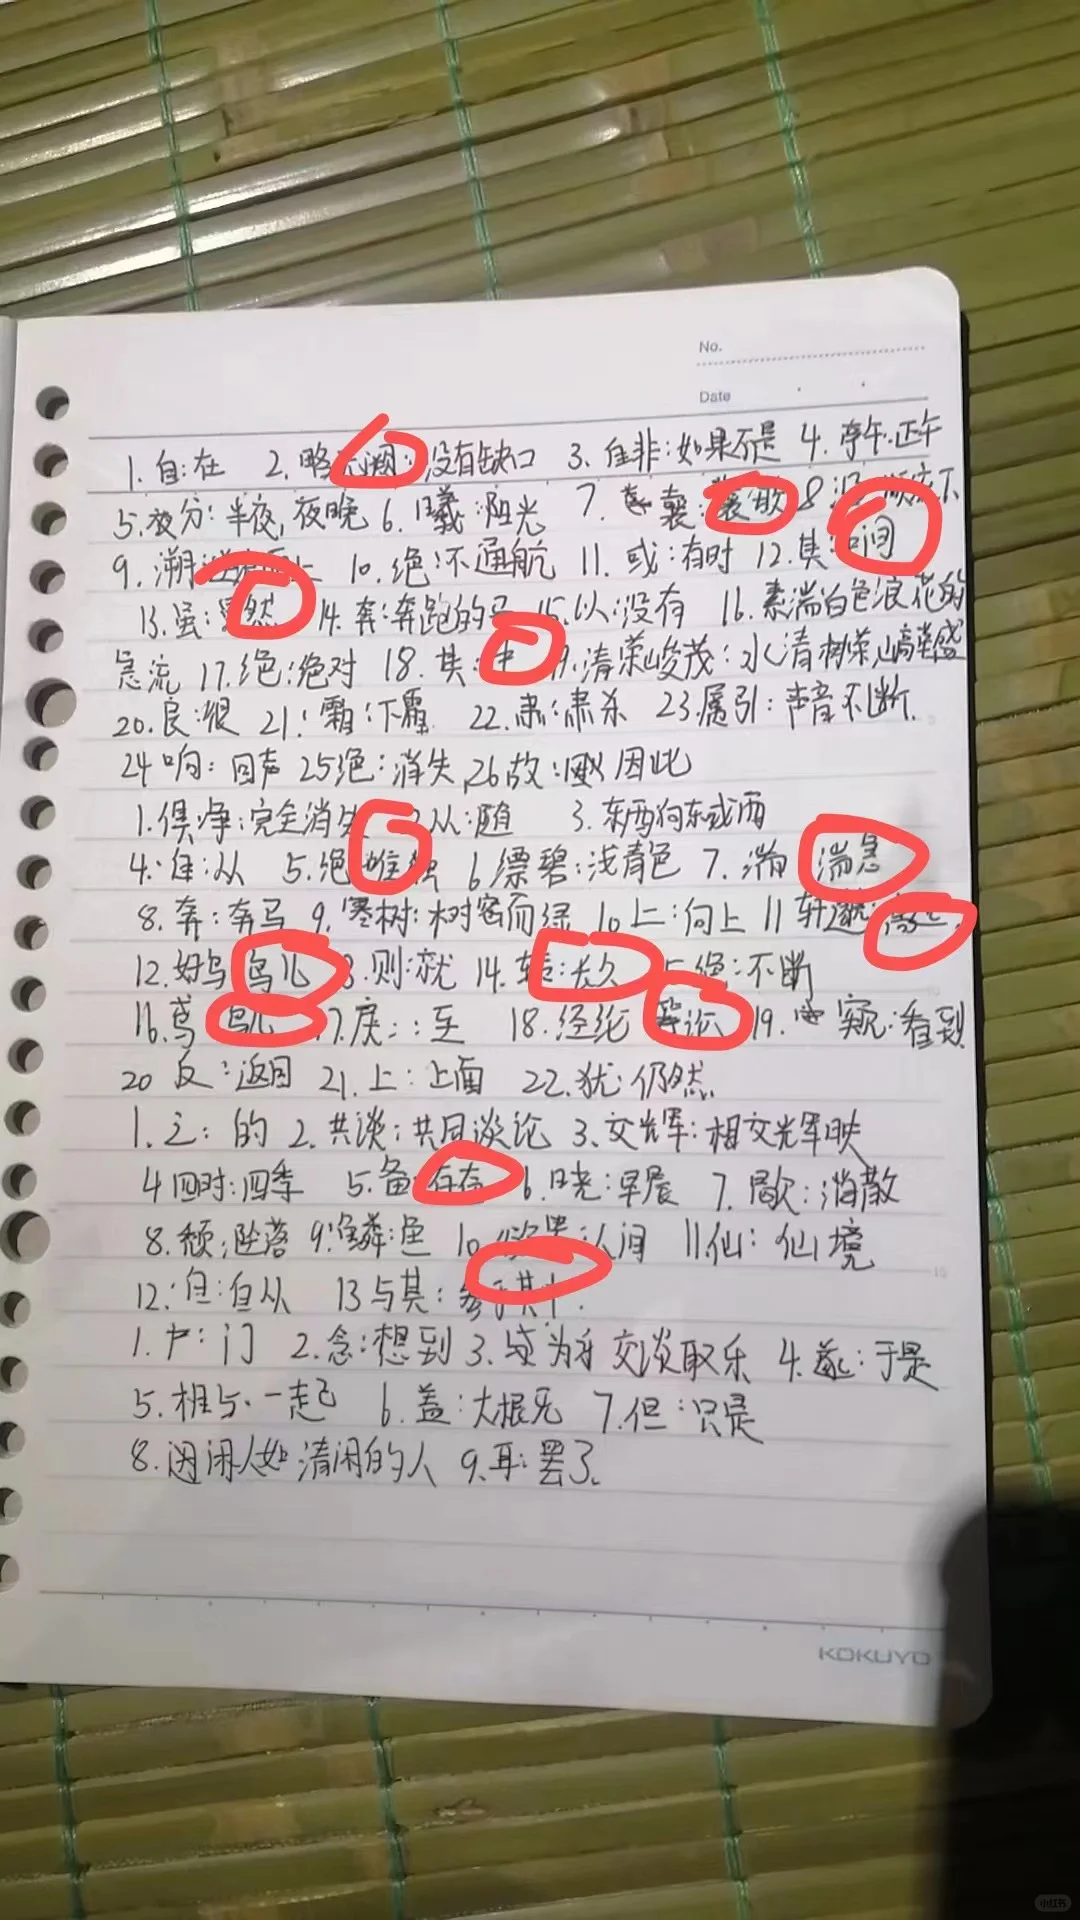 No.
Date
1. 自:在 2. 略 :没有缺口 3. 自非:如果不是 4. 亭午:正午
5. 夜分:半夜,夜晚 6. 曦:阳光 7. 襄: 8
9. 溯 10. 绝:不通航 11. 或:有时 12. 其: 间
13. 虽: 然 14. 奔:奔跑的 15. 以:没有 16. 素湍白色浪花的
急流 17. 绝:绝对 18. 其: 19. 清荣峻茂:水清树荣山高草盛
20. 良:很 21. 霜:下霜 22. 肃:肃杀 23. 属引:声音不断.
24 响:回声 25 绝:消失 26 故: 因此
1. 俱净:完全消失 2. 从:随 3. 东西向东或西
4. 自:从 5. 绝 6 缥碧:浅青色 7. 湍 湍急
8. 奔:奔马 9. 寒树:树密而绿 10 上:向上 11 轩邈
12. 好鸟 鸟儿 13. 则:就 14. 转:久 15. 绝:不断
16. 鸢 鸟儿 17. 戾::至 18. 经纶 19. 窥:看到
20 反:返回 21. 上:上面 22. 犹:仍然.
1. 之:的 2. 共谈:共同谈论 3. 交辉:相交光辉映
4 四时:四季 5. 备: 6. 晓:早晨 7. 歇:消散
8. 颓:坠落 9. 鳞:鱼 10 人间 11. 仙:仙境
12. 自:自从 13 与其:
1. 户:门 2. 念:想到 3. 交谈取乐 4. 遂:于是
5. 相与.一起 6. 盖:大概是 7. 但:只是
8. 闲人如 清闲的人 9. 耳:罢了.
KOKUYO
小红书